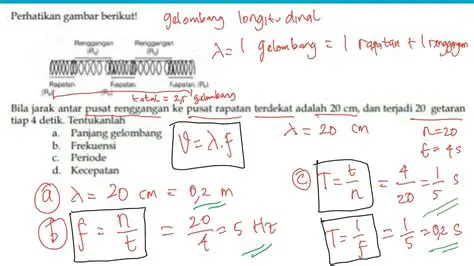 Perhatikan gambar berikut!
gelombang longitudinal
λ = 1 gelombang = 1 rapatan + 1 renggangan
Renggangan
(R₁)
Renggangan
(R₂)
Rapatan
(R₁)
Rapatan
Rapatan
total = 2,5 gelombang
Bila jarak antar pusat renggangan ke pusat rapatan terdekat adalah 20 cm, dan terjadi 20 getaran
tiap 4 detik. Tentukanlah
a. Panjang gelombang
b. Frekuensi
c. Periode
d. Kecepatan
v = λ.f
λ = 20 cm
n = 20
t = 4 s
a λ = 20 cm = 0,2 m
b f = n/t = 20/4 = 5 Hz
c T = t/n = 4/20 = 1/5 s
T = 1/f = 1/5 = 0,2 s